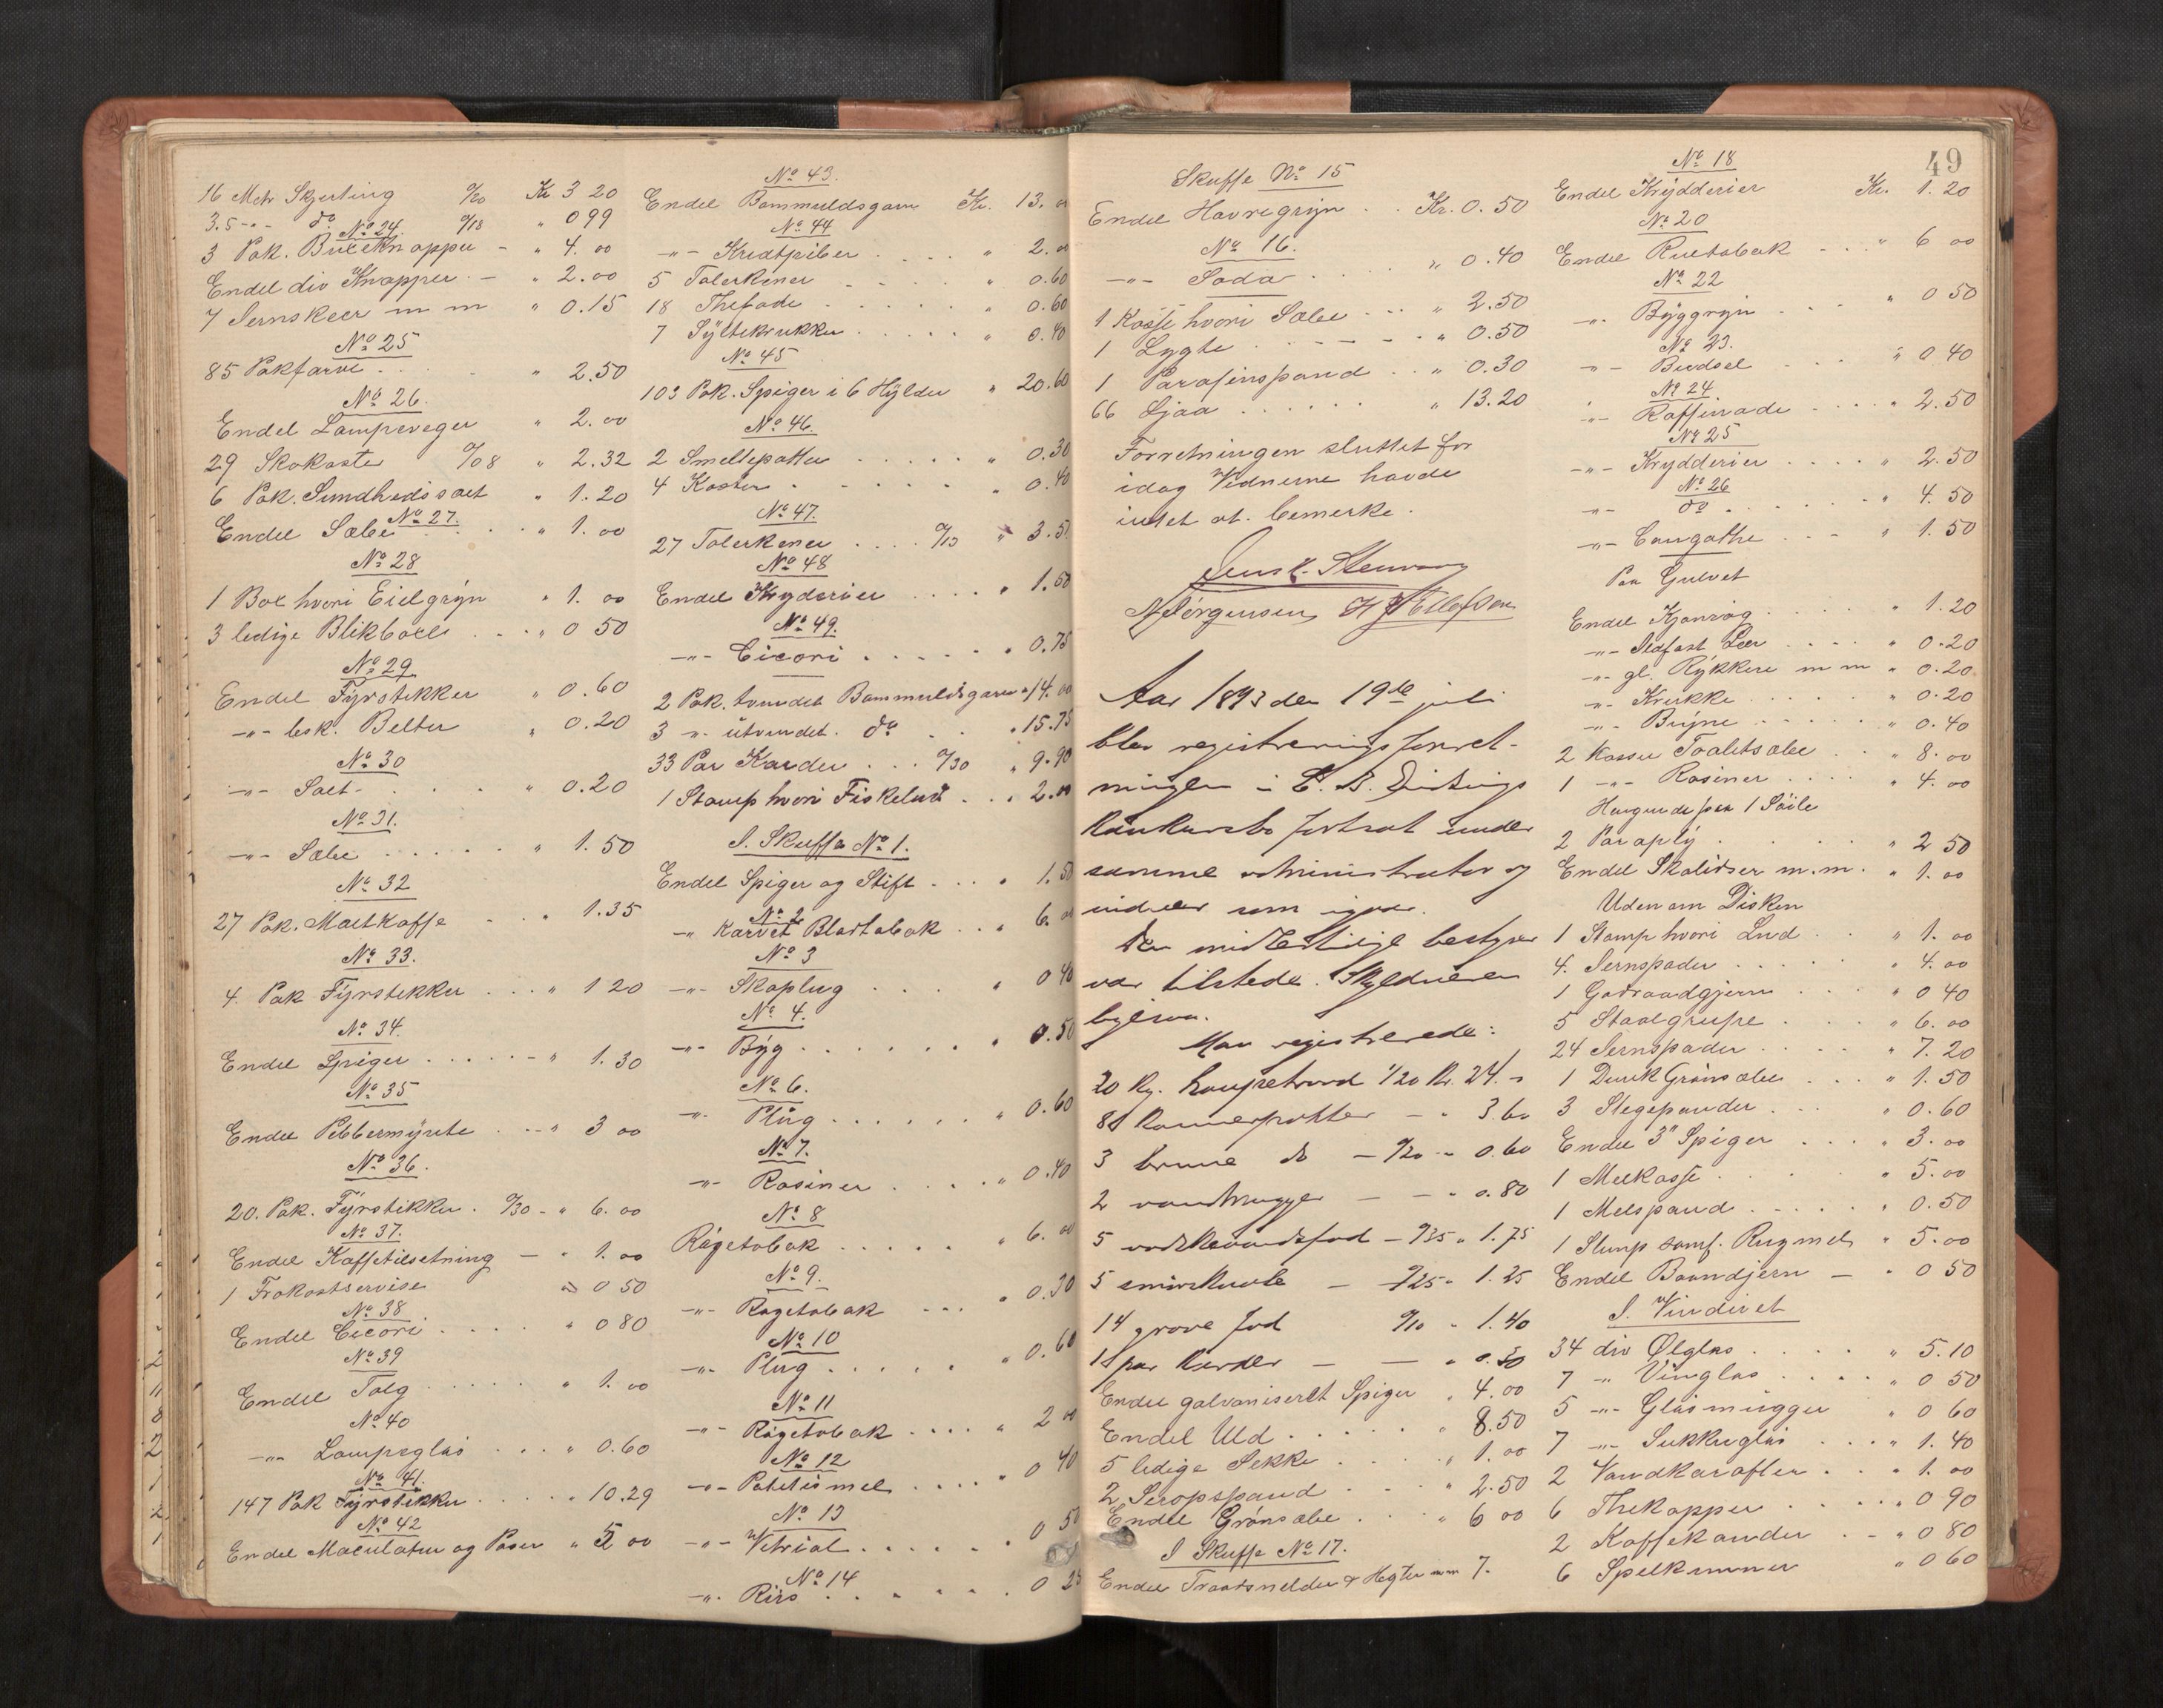 16 Metr Skjerting 0/20 Kr 3 20
3.5 -"- do 0/18 " 0 99
No 24.
3 Pak. Buxeknapper - " 4. 00
Endel div Knapper - " 2.00
7 Jernskeer m m " 0.15
No 25
85 Pakfarve . . " 2.50
No 26.
Endel Lampeveger " 2.00
29 Skokoster 0/08 " 2.32
6 Pak. Sundhedssalt " 1.20
No 27.
Endel Sæbe . . " 1. 00
No 28
1 Box hvori Eielgryn " 1. 00
3 ledige Blikboxe . . " 0 50
No 29
Endel Fyrstikker " 0.60
-"- besk. Belter " 0.20
No 30
-"- Salt . . . " 0.20
No 31.
-"- Sæbe . . . . . " 1. 50
No 32
27 Pak. Maltkaffe . . " 1.35
No 33.
4. Pak Fyrstikker . . . " 1 20
No 34.
Endel Spiger . . . . . - " 1. 30
No 35
Endel Pebbermynte . . - " 3 00
No 36.
20. Pak. Fyrstikker . 0/30 - " 6. 00
No 37.
Endel Kaffetilsetning - " 1. 00
1 Frokostservise " 0 50
No 38
Endel Cicori . . . . " 0 80
No 39
Endel Talg . . . . . " 1. 00
No 40
-"- Lampeglas . . . . " 0.60
No 41.
147 Pak Fyrstikker . . . . " 10.29
No 42
Endel Maculatur og Poser " 5 00
No 43.
Endel Bommuldsgarn Kr. 13. 00
No 44
-"- Kridtpiber . . . . " 2. 00
5 Talerkener . . . . " 0.60
18 Thefade . . . . . " 0.60
7 Syltekrukker . . . . . " 0.40
No 45
103 Pak. Spiger i 6 Hylder " 20.60
No 46.
2 Smeltepotter . . . . . " 0.30
4 Koster . . . . . . " 0.40
No 47.
27 Talerkener . . . . 0/13 " 3.51
No 48
Endel Kryderier . . . . . " 1.50
No 49.
-"- Cicori . . . . . . " 0.75
2 Pak. tvundet Bommuldsgarn " 14. 00
3 -"- utvundet. do . . " 15.75
33 Par Karder . . . 0/30 " 9.90
1 Stamp hvori Fiskelud . . . 2.00
I. Skuffe No 1.
Endel Spiger og Stift . . . " 1. 50
No 2
-"- Karvet Bladtobak . . . " 6. 00
No 3
-"- Skaplug . . . . " 0 40
No 4.
-"- Byg . . . . . . . " 0.50
No 6.
-"- Plug . . . . . . . " 0.60
No 7.
-"- Rosiner . . . . . " 0.40
No 8
Røgetobak . . . . . . " 6. 00
No 9.
-"- Røgetobak . . . . " 0.30
No 10
-"- Plug . . . . . . " 0.60
No 11
-"- Røgetobak . . . . " 2 00
No 12
-"- Potetismel . . . . " 0 40
No 13
-"- Vitriol . . . . . . " 0 50
No 14
-"- Riis . . . . . . 0 25
Skuffe No 15
Endel Havregryn . . Kr. 0. 50
No 16.
-"- Soda . . . . . " 0.40
1 Kasse hvori Sæbe . . . " 2.50
1 Lygte . . . . . . " 0.50
1 Parafinspand . . " 0.30
66 Ljaa . . . . . . " 13.20
Forretningen sluttet for
idag Vidnerne havde
intet at. bemerke.
Jens K. Stenvaag
N Jørgensen H J Ellefsen
Aar 1893 den 19de juli
blev registreringsforret-
ningen i
konkursbo fortsat under
samme administrator og
vidner som igaar.
Den midlertidige bestyrer
var tilstede. Skyldneren
ligesaa.
Man registrerede:
20 Kg. hampetraad 1/20 Kr. 24. -
81 - " 3.60
3 brune do - 0/20 - " 0.60
2 vandmugger - - " 0.80
5 vadskevandsfad - 0/35 " 1.75
5 - 0/25 " 1.25
14 grove fad 0/10 " 1.40
1 par karder - - " 0.30
Endel galvaniseret Spiger " 4.00
Endel Uld . . . . . " 8.50
5 ledige Sekke . . . . " 1. 00
2 Siropspand . . . " 2.50
Endel Grønsæbe . . . " 6 00
I Skuffe No 17.
Endel Traadsnelder & Hegter mm 7.
49
No 18
Endel Krydderier Kr. 1. 20
No 20
Endel Rulltobak . . . " 6 00
No 22
-"- Byggryn . . . " 0 50
No 23.
-"- Bindsel . . . " 0 40
No 24.
-"- Raffinade . . . . " 2.50
No 25
-"- Krydderier . . . . " 2.50
No 26
-"- do . . . . . . " 4. 50
-"- Congothe . . . " 1. 50
Paa Gulvet
Endel Kjønrøg . . . . " 1.20
-"- Ildfast Leer . . . . " 0.20
-"- gl. Rykkere m m " 0.20
-"- Krukke . . . . . " 0.20
-"- Bryne . . . . . " 0.40
2 Kasser Toaletsæbe . . " 8.00
1 -"- Rosiner . . . . " 4. 00
Hengende paa 1 Søile
2 Paraply . . . . . " 2 50
Endel Skolidser m.m. " 1. 00
Uden om Disken
1 Stamp hvori Lud . . " 1. 00
4. Jernspader . . . . . " 4. 00
1 . . . " 0 40
5 Staalgreipe . . . . " 6. 00
24 Jernspader . . . . " 7. 20
1 Dunk Grønsæbe . . . " 1. 50
3 Stegepander . . . " 0.60
Endel 3" Spiger . . . . " 3. 00
1 Melkasse . . . . " 5. 00
1 Melspand . . . . . " 0.50
1 Slump saml. Rugmel " 5.00
Endel Baandjern - " 0 50
I. Vinduet
34 div Ølglas . . . . " 5.10
7 -"- Vinglas . . . . . " 0 50
5 -"- Glasmugger " 0 60
7 -"- Sukkerglas . . . . " 1. 40
2 Vandkarafler . . . " 1. 00
6 Thekopper . . . . . " 0 90
2 Kaffekander . - " 0 80
6 Spelkummer " 0 60